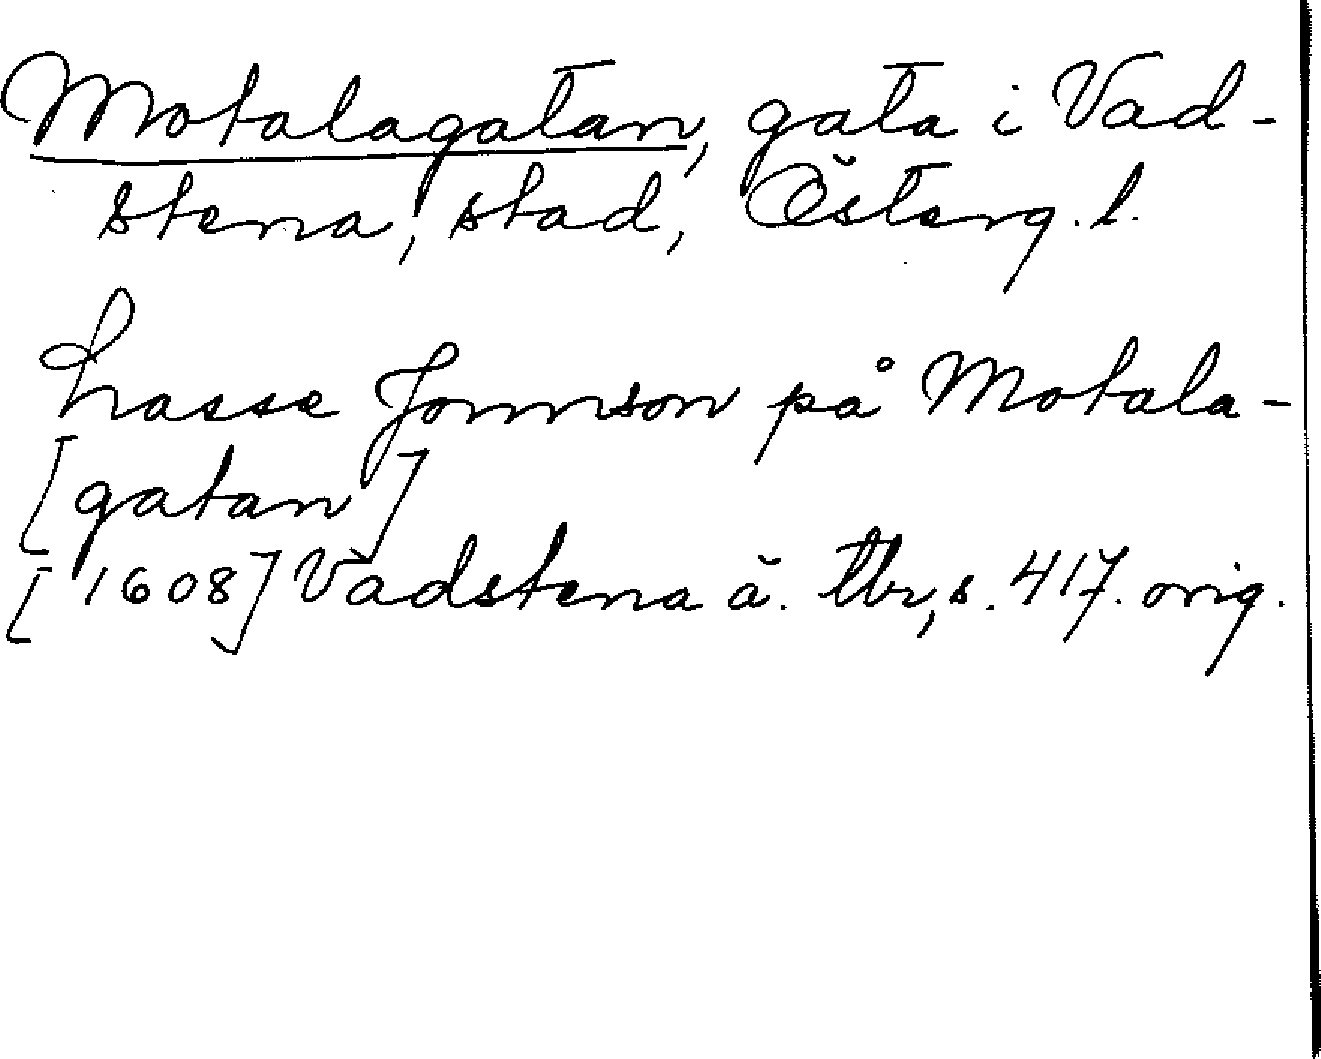 Motalagatan, gata i Vad-
stena, stad, Österg. l.
Lasse Jonnson på Motala-
[gatan]
[1608] Vadstena ä. tbr, s. 417. orig.